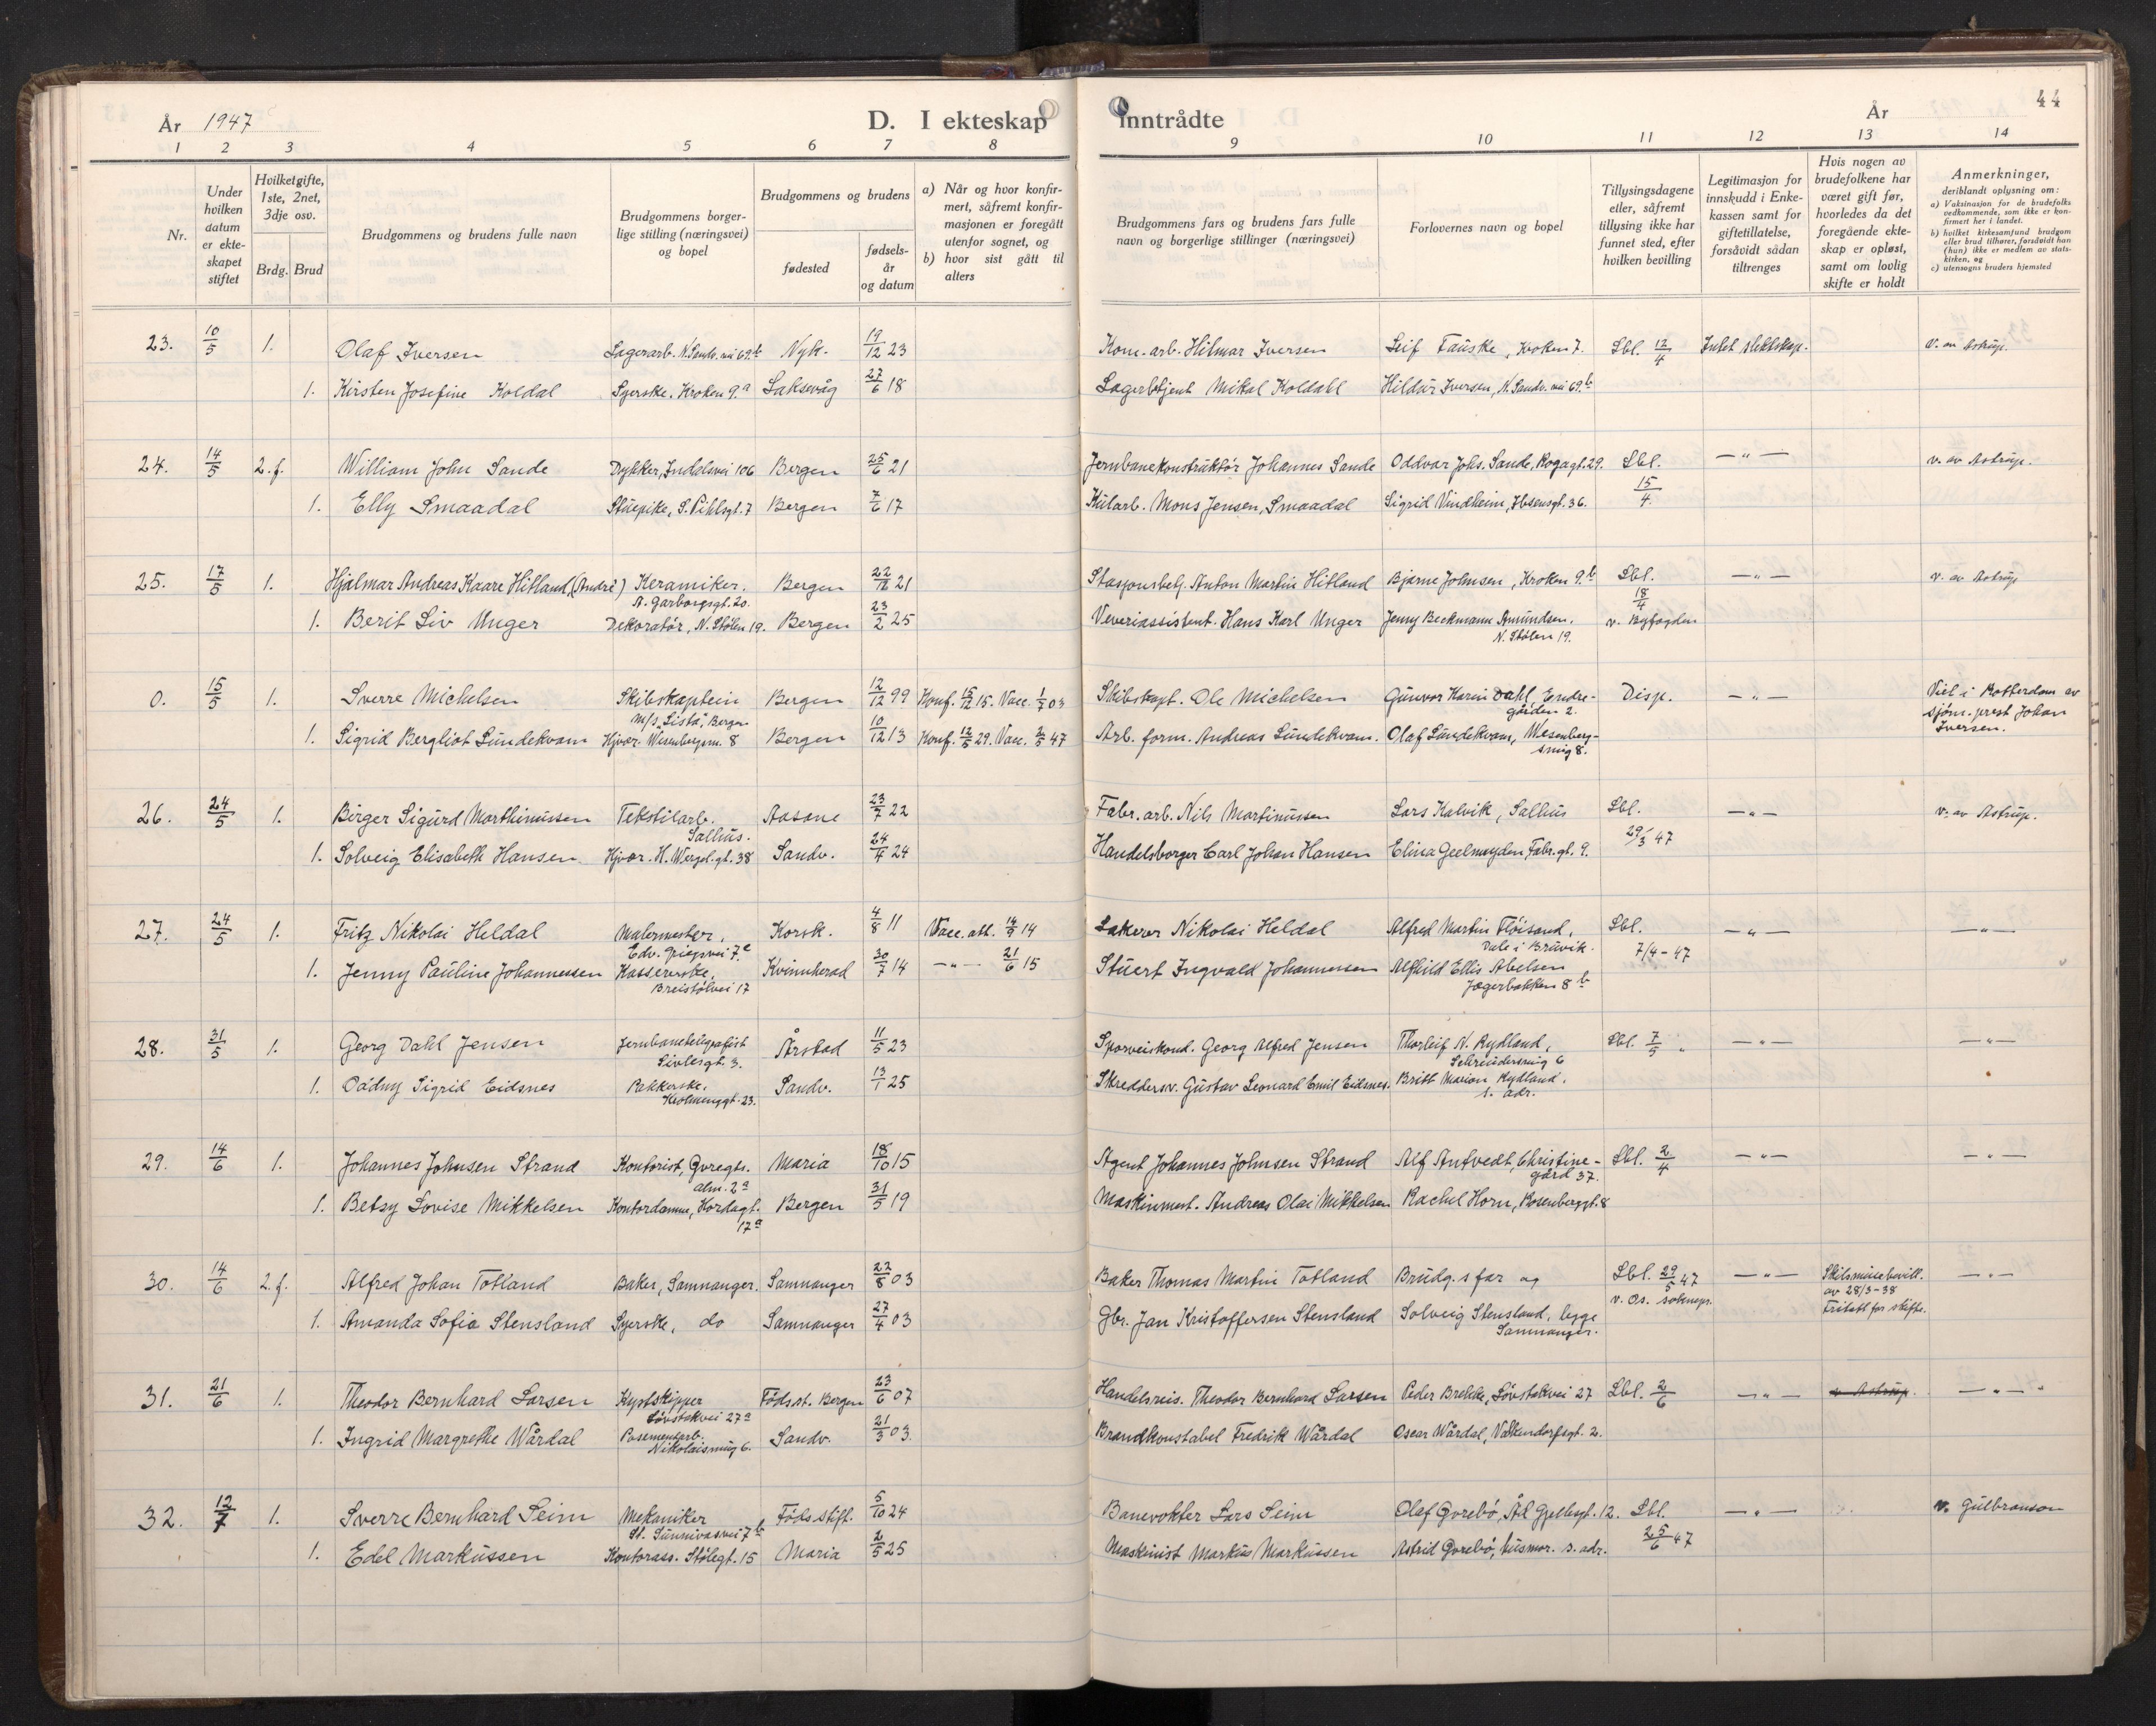 44
År 1947 D. I ekteskap inntrådte År
1 2 3 4 5 6 7 8 9 10 11 12 13 14
Nr.
Under hvilken datum er ekteskapet stiftet
Hvilket gifte, 1ste, 2net, 3dje osv.
Brdg. Brud
Brudgommens og brudens fulle navn
Brudgommens borgerlige stilling (næringsvei) og bopel
Brudgommens og brudens
fødested
fødselsår og datum
a) Når og hvor konfirmert, såfremt konfirmasjonen er foregått utenfor sognet, og
b) hvor sist gått til alters
Brudgommens fars og brudens fars fulle navn og borgerlige stillinger (næringsvei)
Forlovernes navn og bopel
Tillysingsdagene eller, såfremt tillysing ikke har funnet sted, efter hvilken bevilling
Legitimasjon for innskudd i Enkekassen samt for giftetillatelse, forsåvidt sådan tiltrenges
Hvis nogen av brudefolkene har været gift før, hvorledes da det foregående ekteskap er opløst, samt om lovlig skifte er holdt
Anmerkninger, deriblandt oplysning om:
a) Vaksinasjon for de brudefolks vedkommende, som ikke er konfirmert her i landet.
b) hvilket kirkesamfund brudgom eller brud tilhører, forsåvidt han (hun) ikke er medlem av statskirken, og
c) utensogns bruders hjemsted
23. 10/5 1. Olaf Iversen Lagerarb. N. Sandv. vei 69b Nyk. 19/12 23 Kom. arb. Hilmar Iversen Leif Fauske, Kroken 7. Lbl. 12/4 Intet slektskap. v. av Astrup.
1. Kirsten Josefine Koldal Syerske. Kroken 9.a Laksevåg 27/6 18 Lagerbetjent Mikal Koldahl Hildur Iversen, N. Sandv. vei 69.b
24. 14/5 2. f. William John Sande Dykker, Indalsvei 106 Bergen 25/6 21 Jernbanekonstruktör Johannes Sande Oddvar Johs. Sande, Rogagt. 29. Lbl. 15/4. —„— v. av Astrup.
1. Elly Smaadal Stuepike, S. Pihlsgt. 7 Bergen 7/6 17 Kularb. Mons Jensen, Smaadal Sigrid Vindheim, Ibsensgt. 36.
25. 17/5 1. Hjalmar Andreas Kaare Hitland, (André) Keramiker. A. Garborgsgt. 20. Bergen 22/12 21 Stasjonsbetj. Anton Martin Hitland Bjarne Johnsen, Kroken 9.b Lbl. 18/4 v. Byfogden —„— v. av Astrup
1. Berit Liv Unger Dekoratör, N. Stölen 19. Bergen 23/2 25 Veveriassistent. Hans Karl Unger Jenny Beckmann Amundsen. N. Stölen 19.
0. 15/5 1. Sverre Michelsen Skibskaptein m/s „Lista“, Bergen Bergen 12/12 99 Konf. 15/12 15. Vacc. 1/7 03 Skibskapt. Ole Michelsen Gunvor Karin Dahl, Endregården 2. Disp. —„— Viet i Rotterdam av sjöm. prest Johan Iversen.
1. Sigrid Bergliot Lundekvam Hjvær. Wesenbergsm. 8 Bergen 10/12 13 Konf. 12/5 29. Vacc. 2/5 47 Arb. form. Andreas Lundekvam. Olaf Lundekvam, Wesenbergsmug 8.
26. 24/5 1. Birger Sigurd Marthinussen Tekstilarb. Salhus. Aasane 23/7 22 Fabr. arb. Nils Martinussen Lars Kalvik, Salhus Lbl. 29/3 47 —„— v. av Astrup.
1. Solveig Elisabeth Hansen Hjvær. H. Wergel. gt. 38 Sandv. 24/4 24 Handelsborger Carl Johan Hansen Elina Geelmuyden, Fabr. gt. 9.
27. 24/5 1. Fritz Nikolai Heldal Malermester, Edv. Griegsvei 7.c Korsk. 4/8 11 Vacc. att. 14/9 14 Lakerer Nikolai Heldal Alfred Martin Flöisand, Dale i Bruvik. Lbl. 7/4-47 —„— —„—
1. Jenny Pauline Johannessen Kassererske, Breistölvei 17 Kvinnherad 30/7 14 —„— 21/6 15 Stuert Ingvald Johannessen Alfhild Ellis Abelsen Jægerbakken 8 b
28. 31/5 1. Georg Dahl Jensen Jernbanetelegrafist Sivlesgt. 3. Årstad 11/5 23 Sporveiskond. Georg Alfred Jensen Thorleif N. Rydland, Schreudersmug 6 Lbl. 7/5 —„— —„—
1. Oadny Sigrid Eidsnes Pakkerske. Sandv. 13/1 25 Skreddersv. Gustav Leonard Emil Eidsnes. Britt Marion Rydland. s. adr.
29. 14/6 1. Johannes Johnsen Strand Kontorist, Gvregts. alm. 2a Maria 18/10 15 Agent Johannes Johnsen Strand Alf Antvedt, Christinegård 37. Lbl. 2/4 —„— —„—
1. Betsy Lovise Mikkelsen Kontordamme, Hordagt. 17a Bergen 31/5 19 Maskinmest. Andreas Olai Mikkelsen Rachel Horn, Rosenberggt. 8
30. 14/6 2. f. Alfred Johan Totland Baker, Samnanger. Samnanger 22/8 03 Baker Thomas Martin Totland Brudg. s far og Lbl. 29/5 47 v. Os. soknepr. —„— Skilsmissebevill. av 28/3-38 Fritatt for skifte. —„—
1. Amanda Sofie Stensland Syerske, do Samnanger 27/4 03 Gbr. Jan Kristoffersen Stensland Solveig Stensland, begge Samnanger.
31. 21/6 1. Theodor Bernhard Larsen Kystskipper Lövstakvei 27a Föds.st. Bergen 23/6 07 Handelsreis. Theodor Bernhard Larsen Peder Brekke, Lövstakvei 27 Lbl. 2/6 —„— v Astrup. —„—
1. Ingrid Margrethe Wårdal Posementarb. Nikolaismug 6. Sandv. 21/3 03. Brandkonstabel Fredrik Wårdal Oscar Wårdal, Valkendorfsgt. 2.
32. 12/7 1. Sverre Bernhard Seim Mekaniker St. Sunnivasvei 7b Föds.stift. 5/10 24 Banevokter Lars Seim Olaf Gvrebö, Ål Gjellesgt. 12. Lbl. 25/6 47 —„— v. Gulbranson
1. Edel Markussen Kontorass. Stölegt. 15 Maria 2/5 25 Maskinist Markus Markussen Astrid Gvrebö, husmor. s. adr.